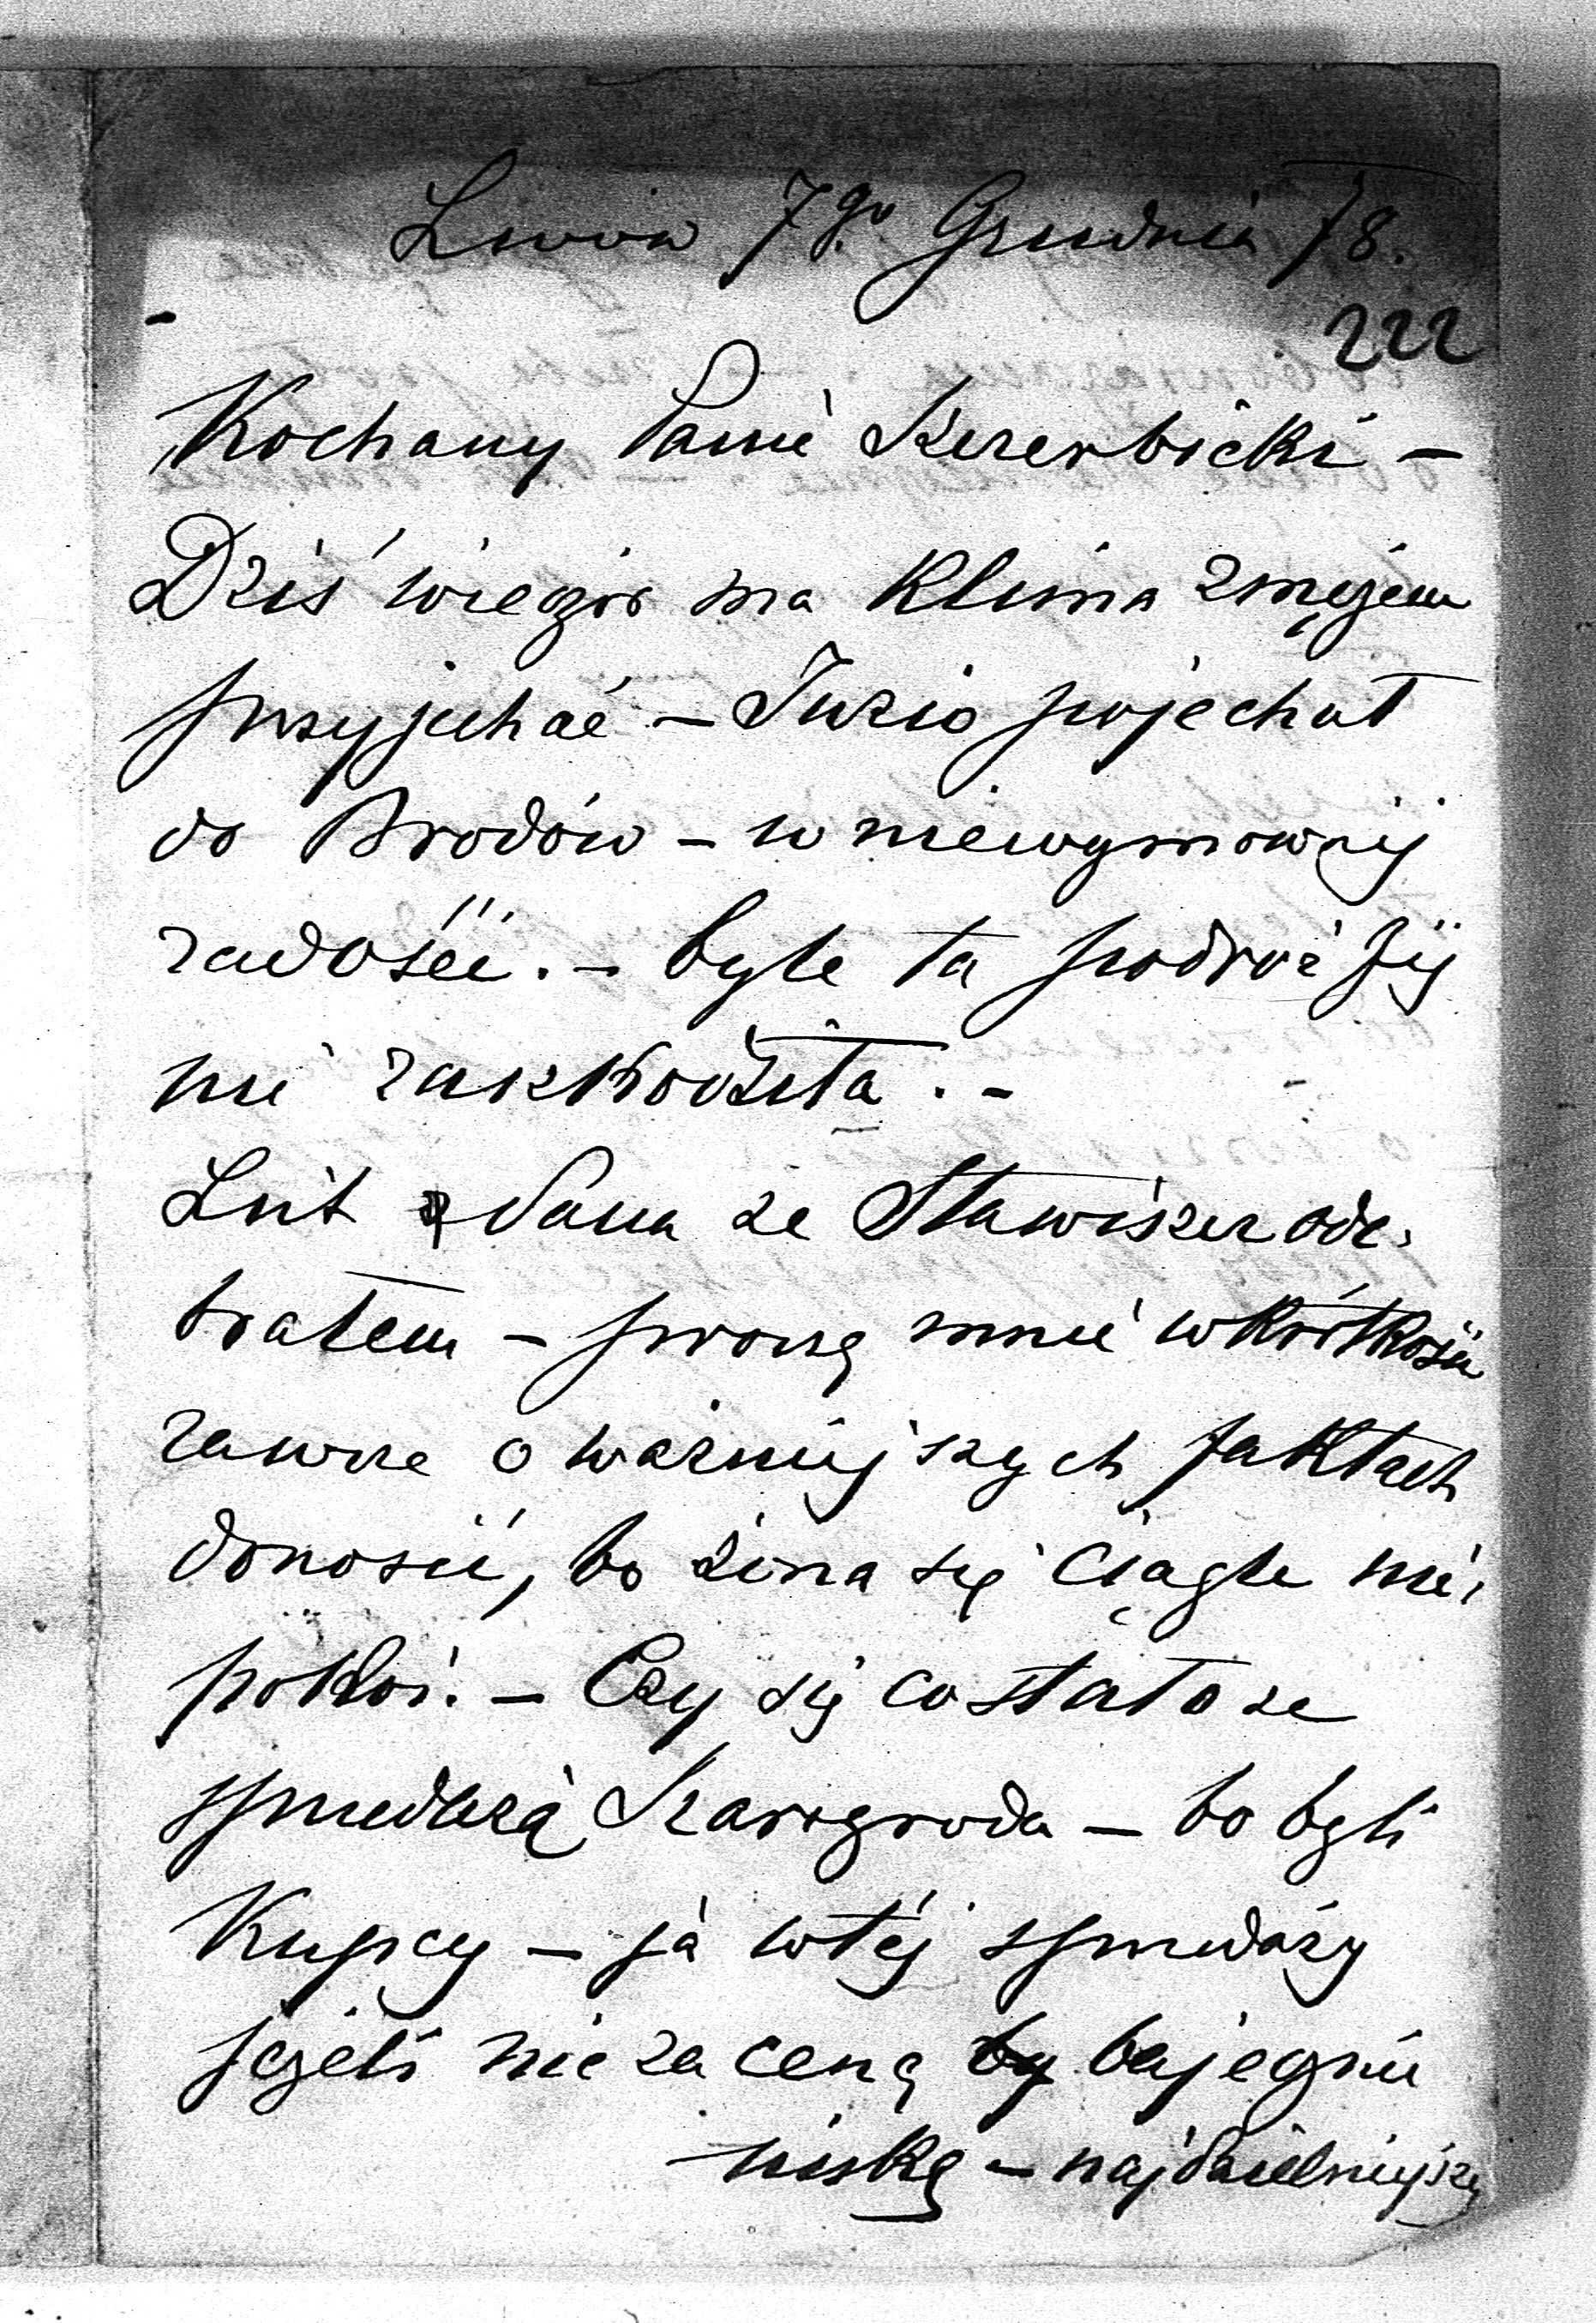 Lwów 7go Grudnia 78.
222
Kochany Panie Szczerbicki –
Dziś wieczór ma Klima z mężem
przyjechać – Juzio pojechał
do Brodów – w niewymownéj
radości. – byle ta podróż Jéj
nie zaszkodziła. –
List Pana ze Stawiszcz ode-
brałem – proszę mnie w krótkości
zawsze o ważniejszych faktach
donosić, bo żona się ciągle nie-
pokoi. – Czy się co stało ze
sprzedażą Szarogroda – bo byli
Kupcy – ja w téj sprzedaży
jeżeli nie za cenę by bajecznie
niską – najdzielniejszą